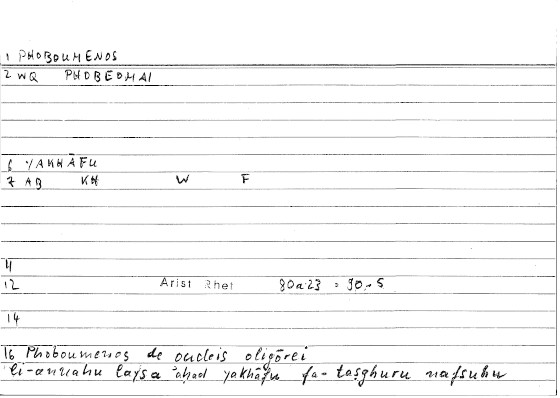 1 PHOBOUMENOS
2 WQ PHOBEOMAI
6 YAKHĀFU
7 AQ KH W F
4
12 Arist Rhet 80a23 = 90.5
14
16 Phoboumenos de oudeis oligōrei
li-annahu laysa aḥad yakhāfu fa-taṣghuru nafsuhu